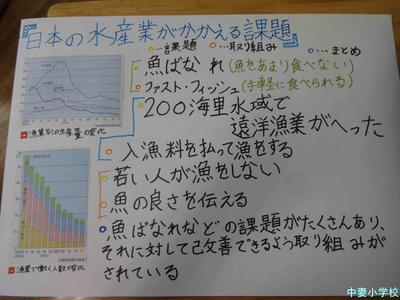 日本の水産業がかかえる課題
○…課題 ○…取り組み ○…まとめ
○魚ばなれ(魚をあまり食べない)
○ファスト・フィッシュ(手軽に食べられる)
○200海里水域で
遠洋漁業がへった
漁業別の生産量の変化
○入漁料を払って漁をする
○若い人が漁をしない
○魚の良さを伝える
○魚ばなれなどの課題がたくさんあり、
それに対して改善できるよう取り組みが
されている
漁業で働く人数の変化
中妻小学校